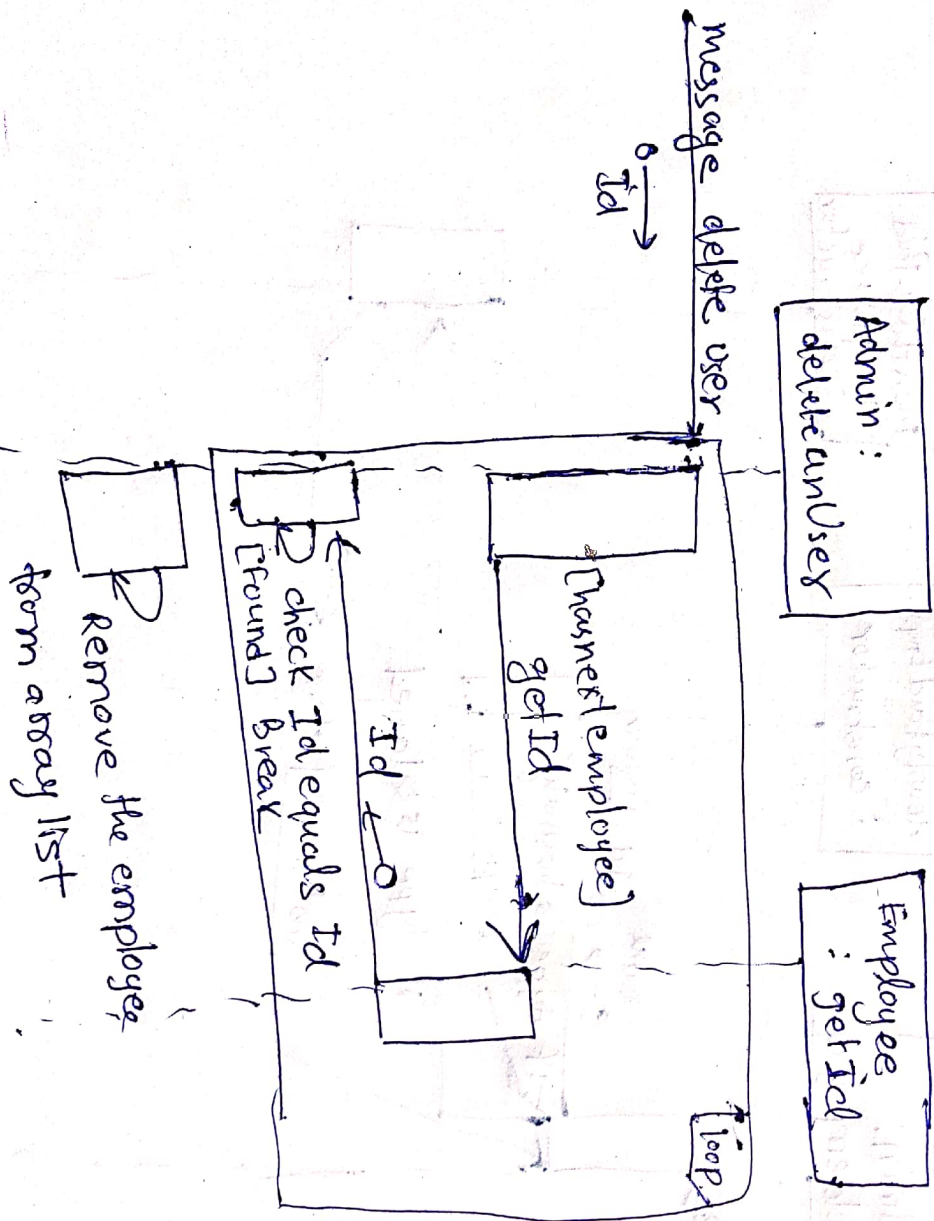 Admin :
deleteanUser
Employee
: getId
message delete user
Id
loop
[hasnextemployee]
getId
Id
check Id equals Id
[found] Break
Remove the employee
from array list